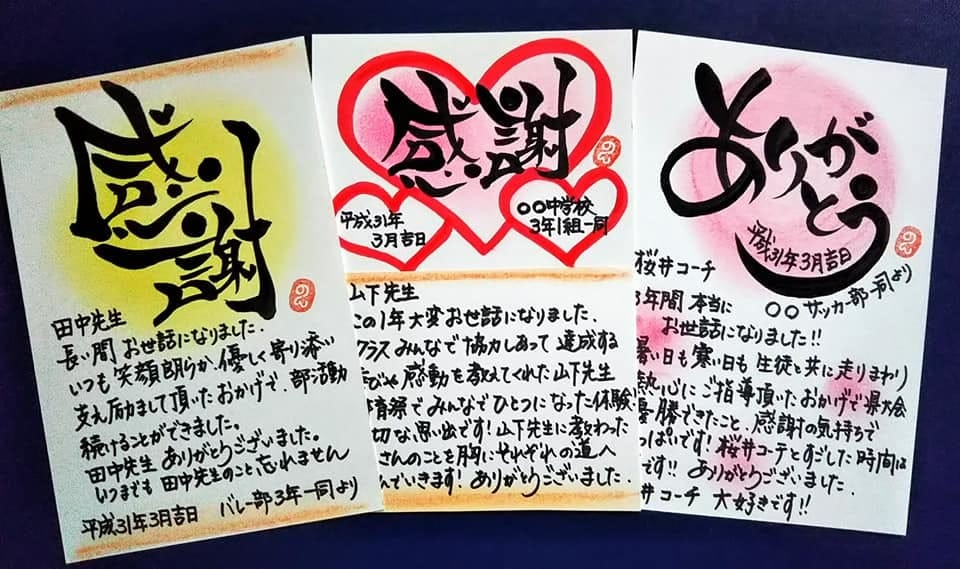 感謝
田中先生
長い間 お世話になりました.
いつも 笑顔朗らか、優しく寄り添い
支え励まして頂いたおかげで、部活動
続けることができました。
田中先生 ありがとうございました。
いつまでも 田中先生のこと忘れません
平成31年3月吉日 バレー部3年一同より
感謝
平成31年
3月吉日
〇〇中学校
3年1組一同
山下先生
この1年大変お世話になりました.
クラス みんなで協力しあって 達成する
びや 感動を教えてくれた山下先生
育祭でみんなでひとつになった体験
切な思い出です!山下先生に教わった
さんのことを胸にそれぞれの道へ
んでいきます!ありがとうございました.
ありがとう
平成31年3月吉日
〇〇 サッカー部一同より
桜井コーチ
3年間 本当に
お世話になりました!!
暑い日も寒い日も 生徒と共に走りまわり
熱心にご指導頂いたおかげで県大会
優勝できたこと、感謝の気持ちで
っぱいです!桜井コーチとすごした時間は
です!! ありがとうございました.
井コーチ 大好きです!!